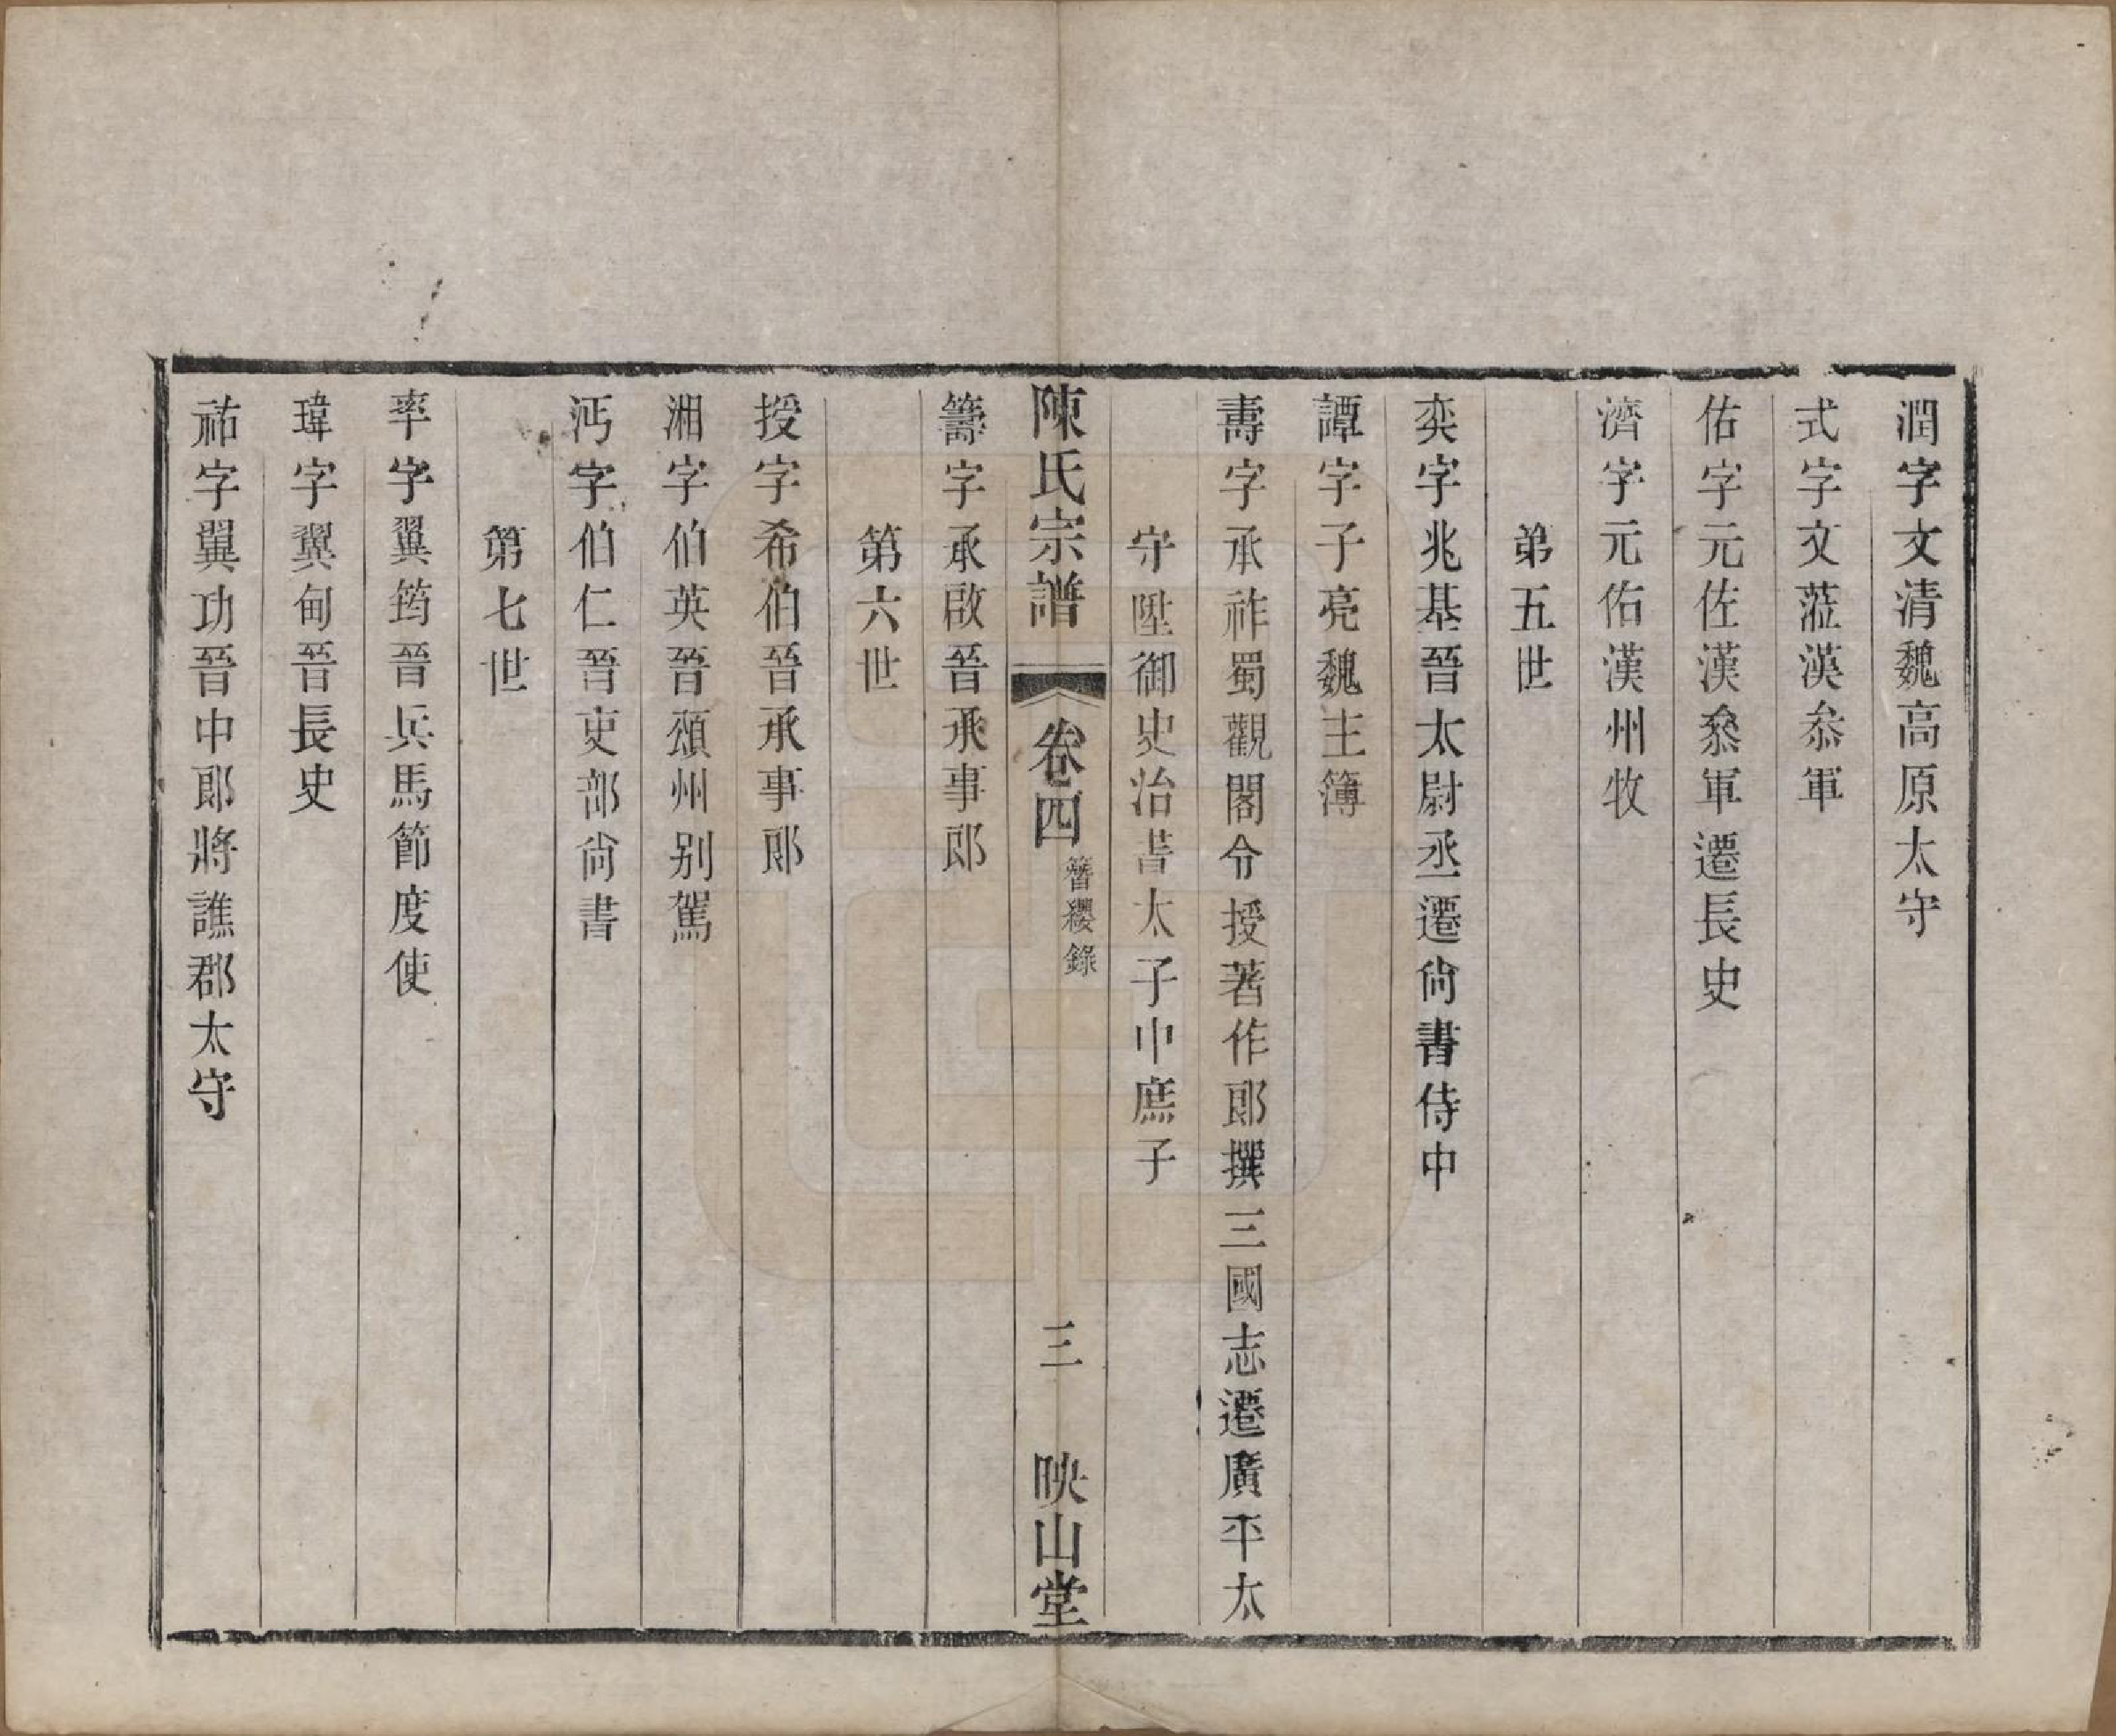 潤字文清魏高原太守
式字文蒞漢叅軍
佑字元佐漢叅軍遷長史
濟字元佑漢州牧
第五世
奕字兆基晉太尉丞遷尙書侍中
譚字子亮魏主簿
壽字承祚蜀觀閣令授著作郎撰三國志遷廣平太
守陞御史治書太子中庶子
籌字承啟晉承事郎
陳氏宗譜
卷四
簪纓錄
三
映山堂
第六世
授字希伯晉承事郎
湘字伯英晉潁州别駕
沔字伯仁晉吏部尙書
第七世
率字翼筠晉兵馬節度使
瑋字翼甸晉長史
祐字翼功晉中郎將譙郡太守